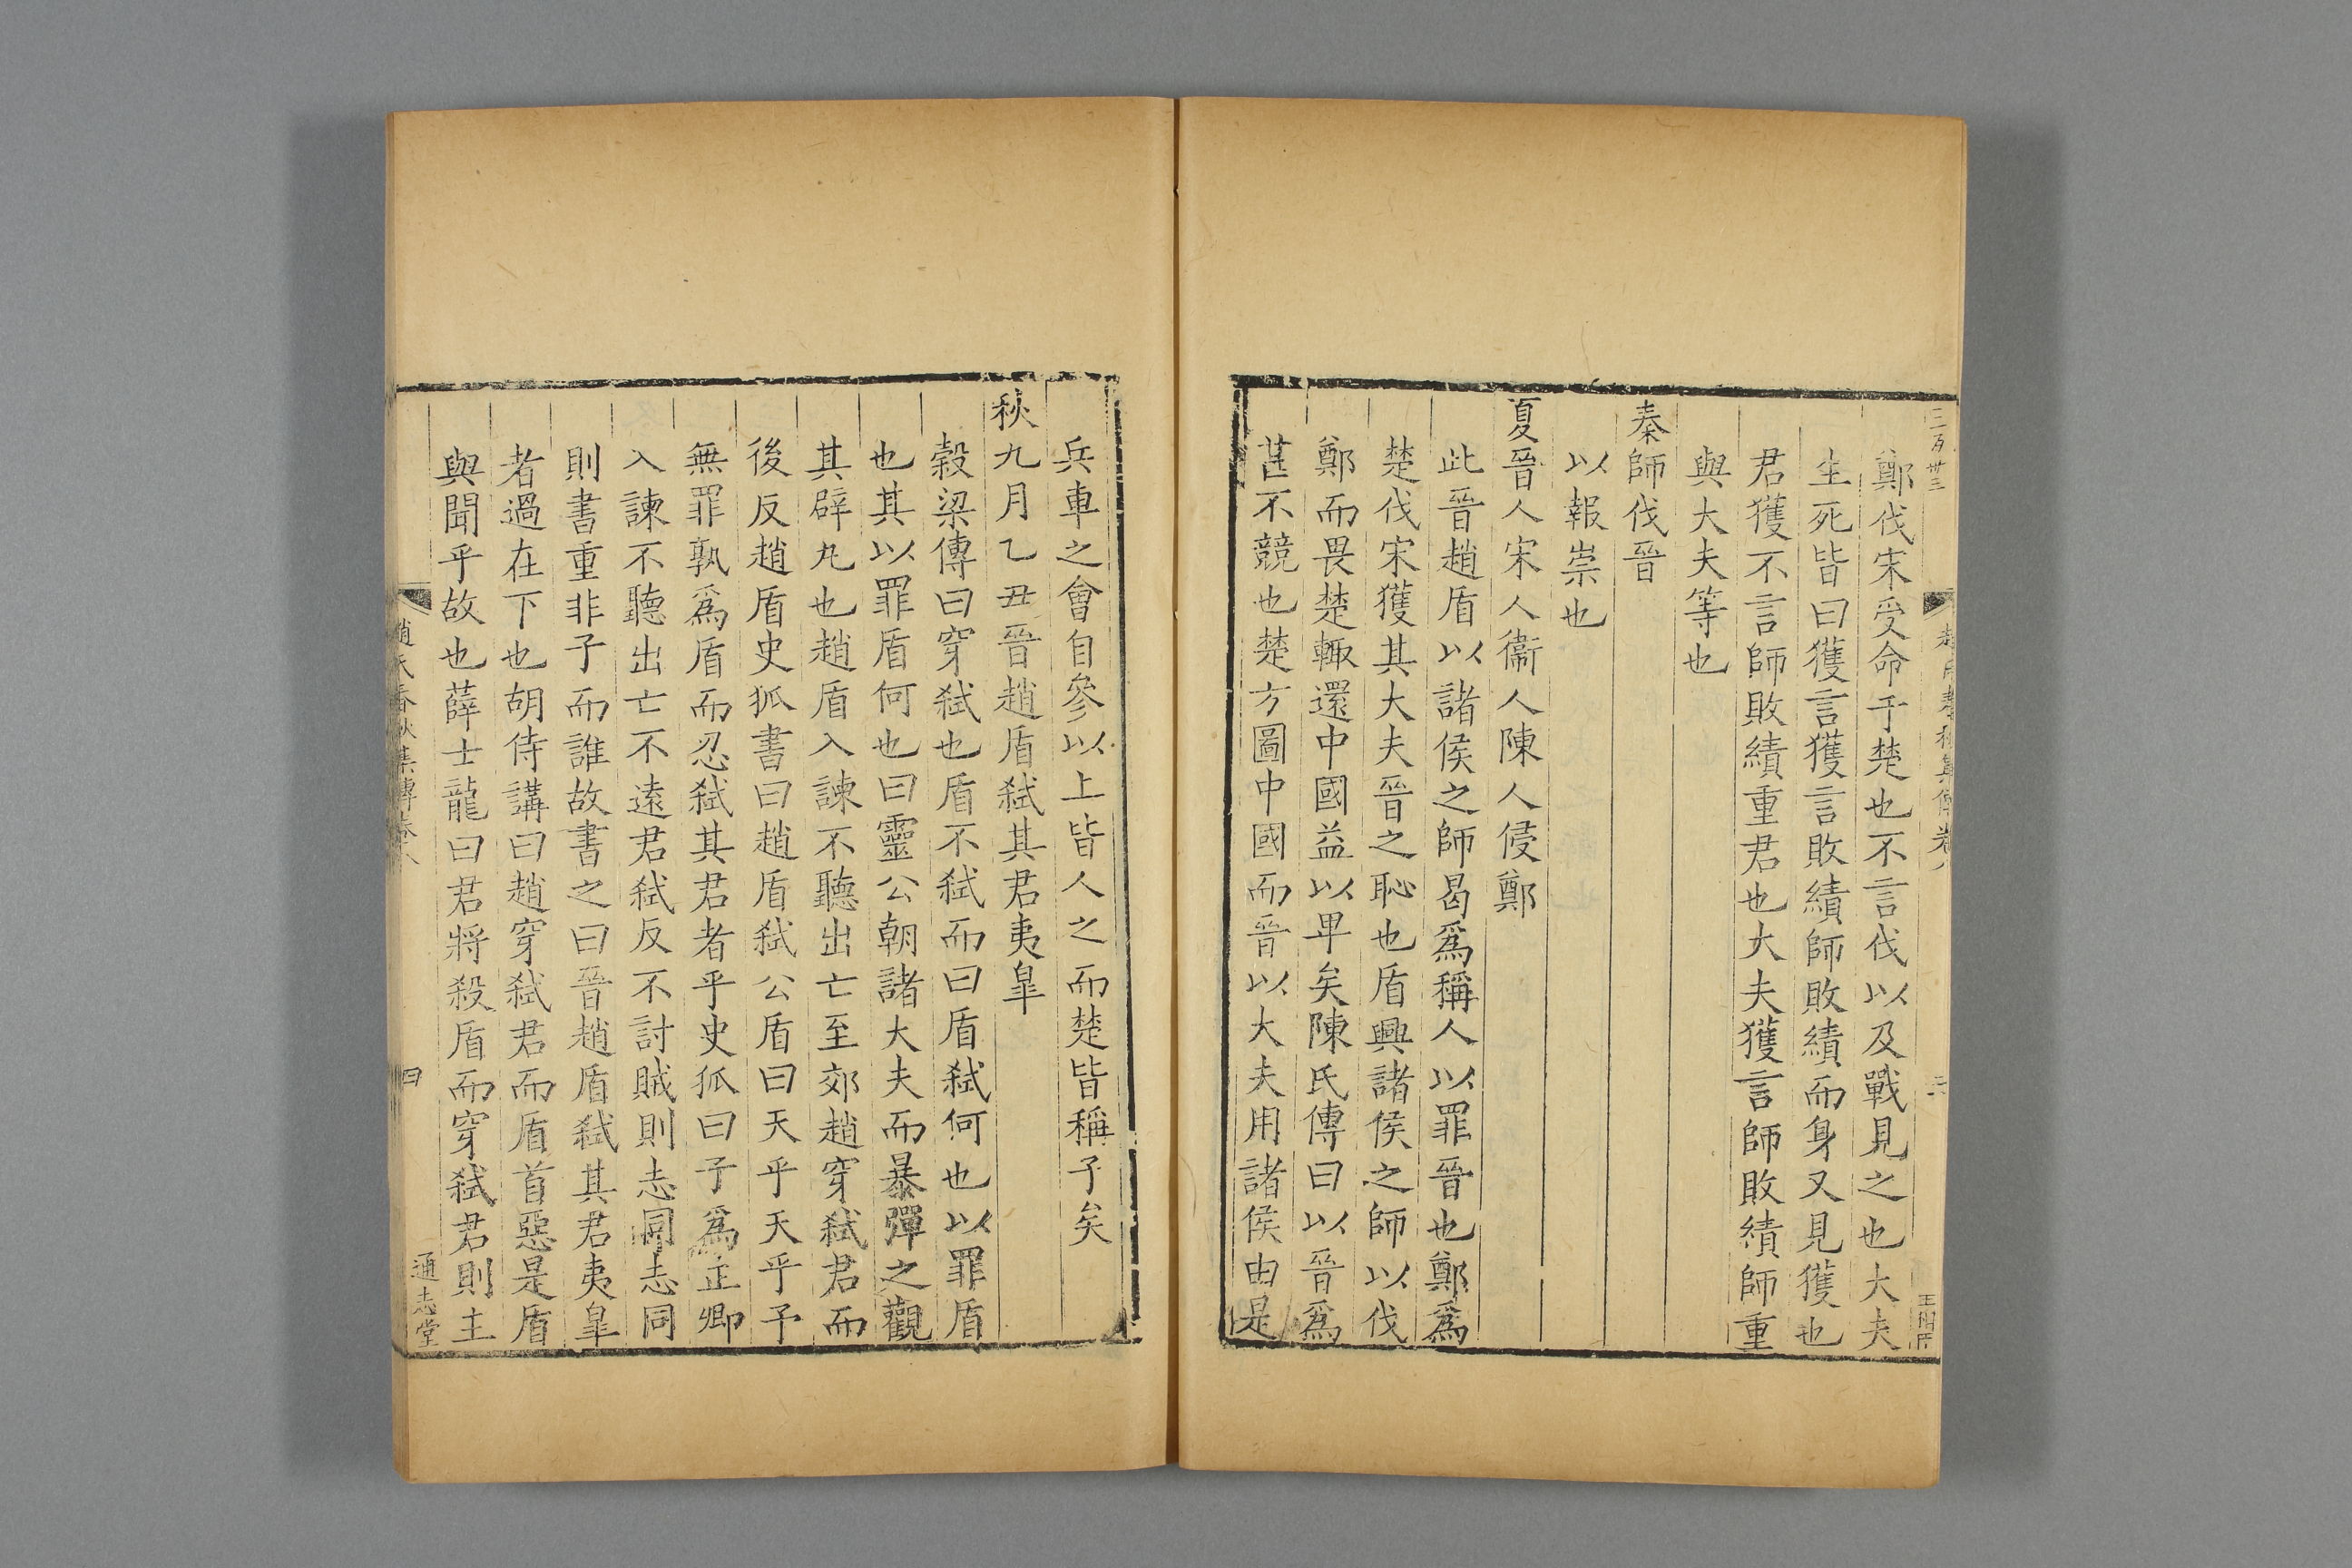 鄭伐宋受命于楚也不言伐以及戰見之也大夫
生死皆曰獲言獲言敗績師敗績而身又見獲也
君獲不言師敗績重君也大夫獲言師敗績師重
與大夫等也
秦師伐晉
以報崇也
夏晉人宋人衞人陳人侵鄭
此晉趙盾以諸侯之師曷爲稱人以罪晉也鄭爲
楚伐宋獲其大夫晉之恥也盾興諸侯之師以伐
鄭而畏楚輙還中國益以卑矣陳氏傳曰以晉爲
甚不競也楚方圖中國而晉以大夫用諸侯由是
兵車之會自參以上皆人之而楚皆稱子矣
秋九月乙丑晉趙盾弑其君夷皐
穀梁傳曰穿弑也盾不弑而曰盾弑何也以罪盾
也其以罪盾何也曰靈公朝諸大夫而暴彈之觀
其辟丸也趙盾入諫不聽出亡至郊趙穿弑君而
後反趙盾史狐書曰趙盾弑公盾曰天乎天乎予
無罪孰爲盾而忍弑其君者乎史狐曰子爲正卿
入諫不聽出亡不遠君弑反不討賊則志同志同
則書重非子而誰故書之曰晉趙盾弑其君夷皐
者過在下也胡侍講曰趙穿弑君而盾首惡是盾
與聞乎故也薛士龍曰君將殺盾而穿弑君則主
趙氏春秋集傳卷八
四
通志堂